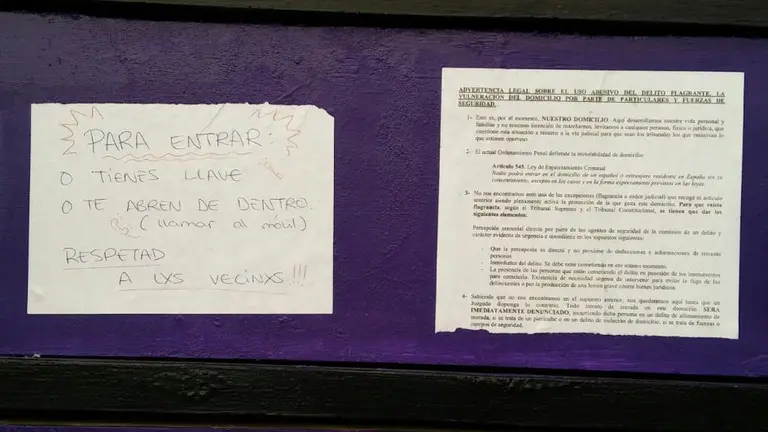 PARA ENTRAR:
O TIENES LLAVE
O TE ABREN DE DENTRO
(llamar al móvil)
RESPETAD
A LXS VECINXS!!!
ADVERTENCIA LEGAL SOBRE EL USO ABUSIVO DEL DELITO FLAGRANTE. LA
VULNERACIÓN DEL DOMICILIO POR PARTE DE PARTICULARES Y FUERZAS DE
SEGURIDAD.
1- Este es, por el momento, NUESTRO DOMICILIO. Aquí desarrollamos nuestra vida personal y
familiar y no tenemos intención de marcharnos, invitamos a cualquier persona, física o jurídica, que
cuestione esta situación a recurrir a la vía judicial para que sean los tribunales los que resuelvan lo
que estimen oportuno
2- El actual Ordenamiento Penal defiende la inviolabilidad de domicilio:
Artículo 545. Ley de Enjuiciamiento Criminal
Nadie podrá entrar en el domicilio de un español o extranjero residente en España sin su
consentimiento, excepto en los casos y en la forma expresamente previstos en las leyes.
3- No nos encontramos ante una de las excepciones (flagrancia u orden judicial) que recoge el artículo
anterior siendo plenamente activa la protección de la que goza este domicilio. Para que exista
flagrancia, según el Tribunal Supremo y el Tribunal Constitucional, se tienen que dar los
siguientes elementos:
Percepción sensorial directa por parte de los agentes de seguridad de la comisión de un delito y
carácter evidente de urgencia e inmediatez en los supuestos siguientes:
- Que la percepción es directa y no proviene de deducciones e informaciones de terceras
personas
- Inmediatez del delito. Se debe estar cometiendo en ese mismo momento.
- La presencia de las personas que están cometiendo el delito en posesión de los instrumentos
para cometerlo. Existencia de necesidad urgente de intervenir para evitar la fuga de los
delincuentes o por la producción de una lesión grave contra bienes jurídicos.
4- Sabiendo que no nos encontramos en el supuesto anterior, nos quedaremos aquí hasta que un
Juzgado disponga lo contrario. Todo intento de entrada en este domicilio SERÁ
IMEDIATAMENTE DENUNCIADO, incurriendo dicha persona en un delito de allanamiento de
morada, si se trata de un particular o en un delito de violación de domicilio, si se trata de fuerzas o
cuerpos de seguridad.